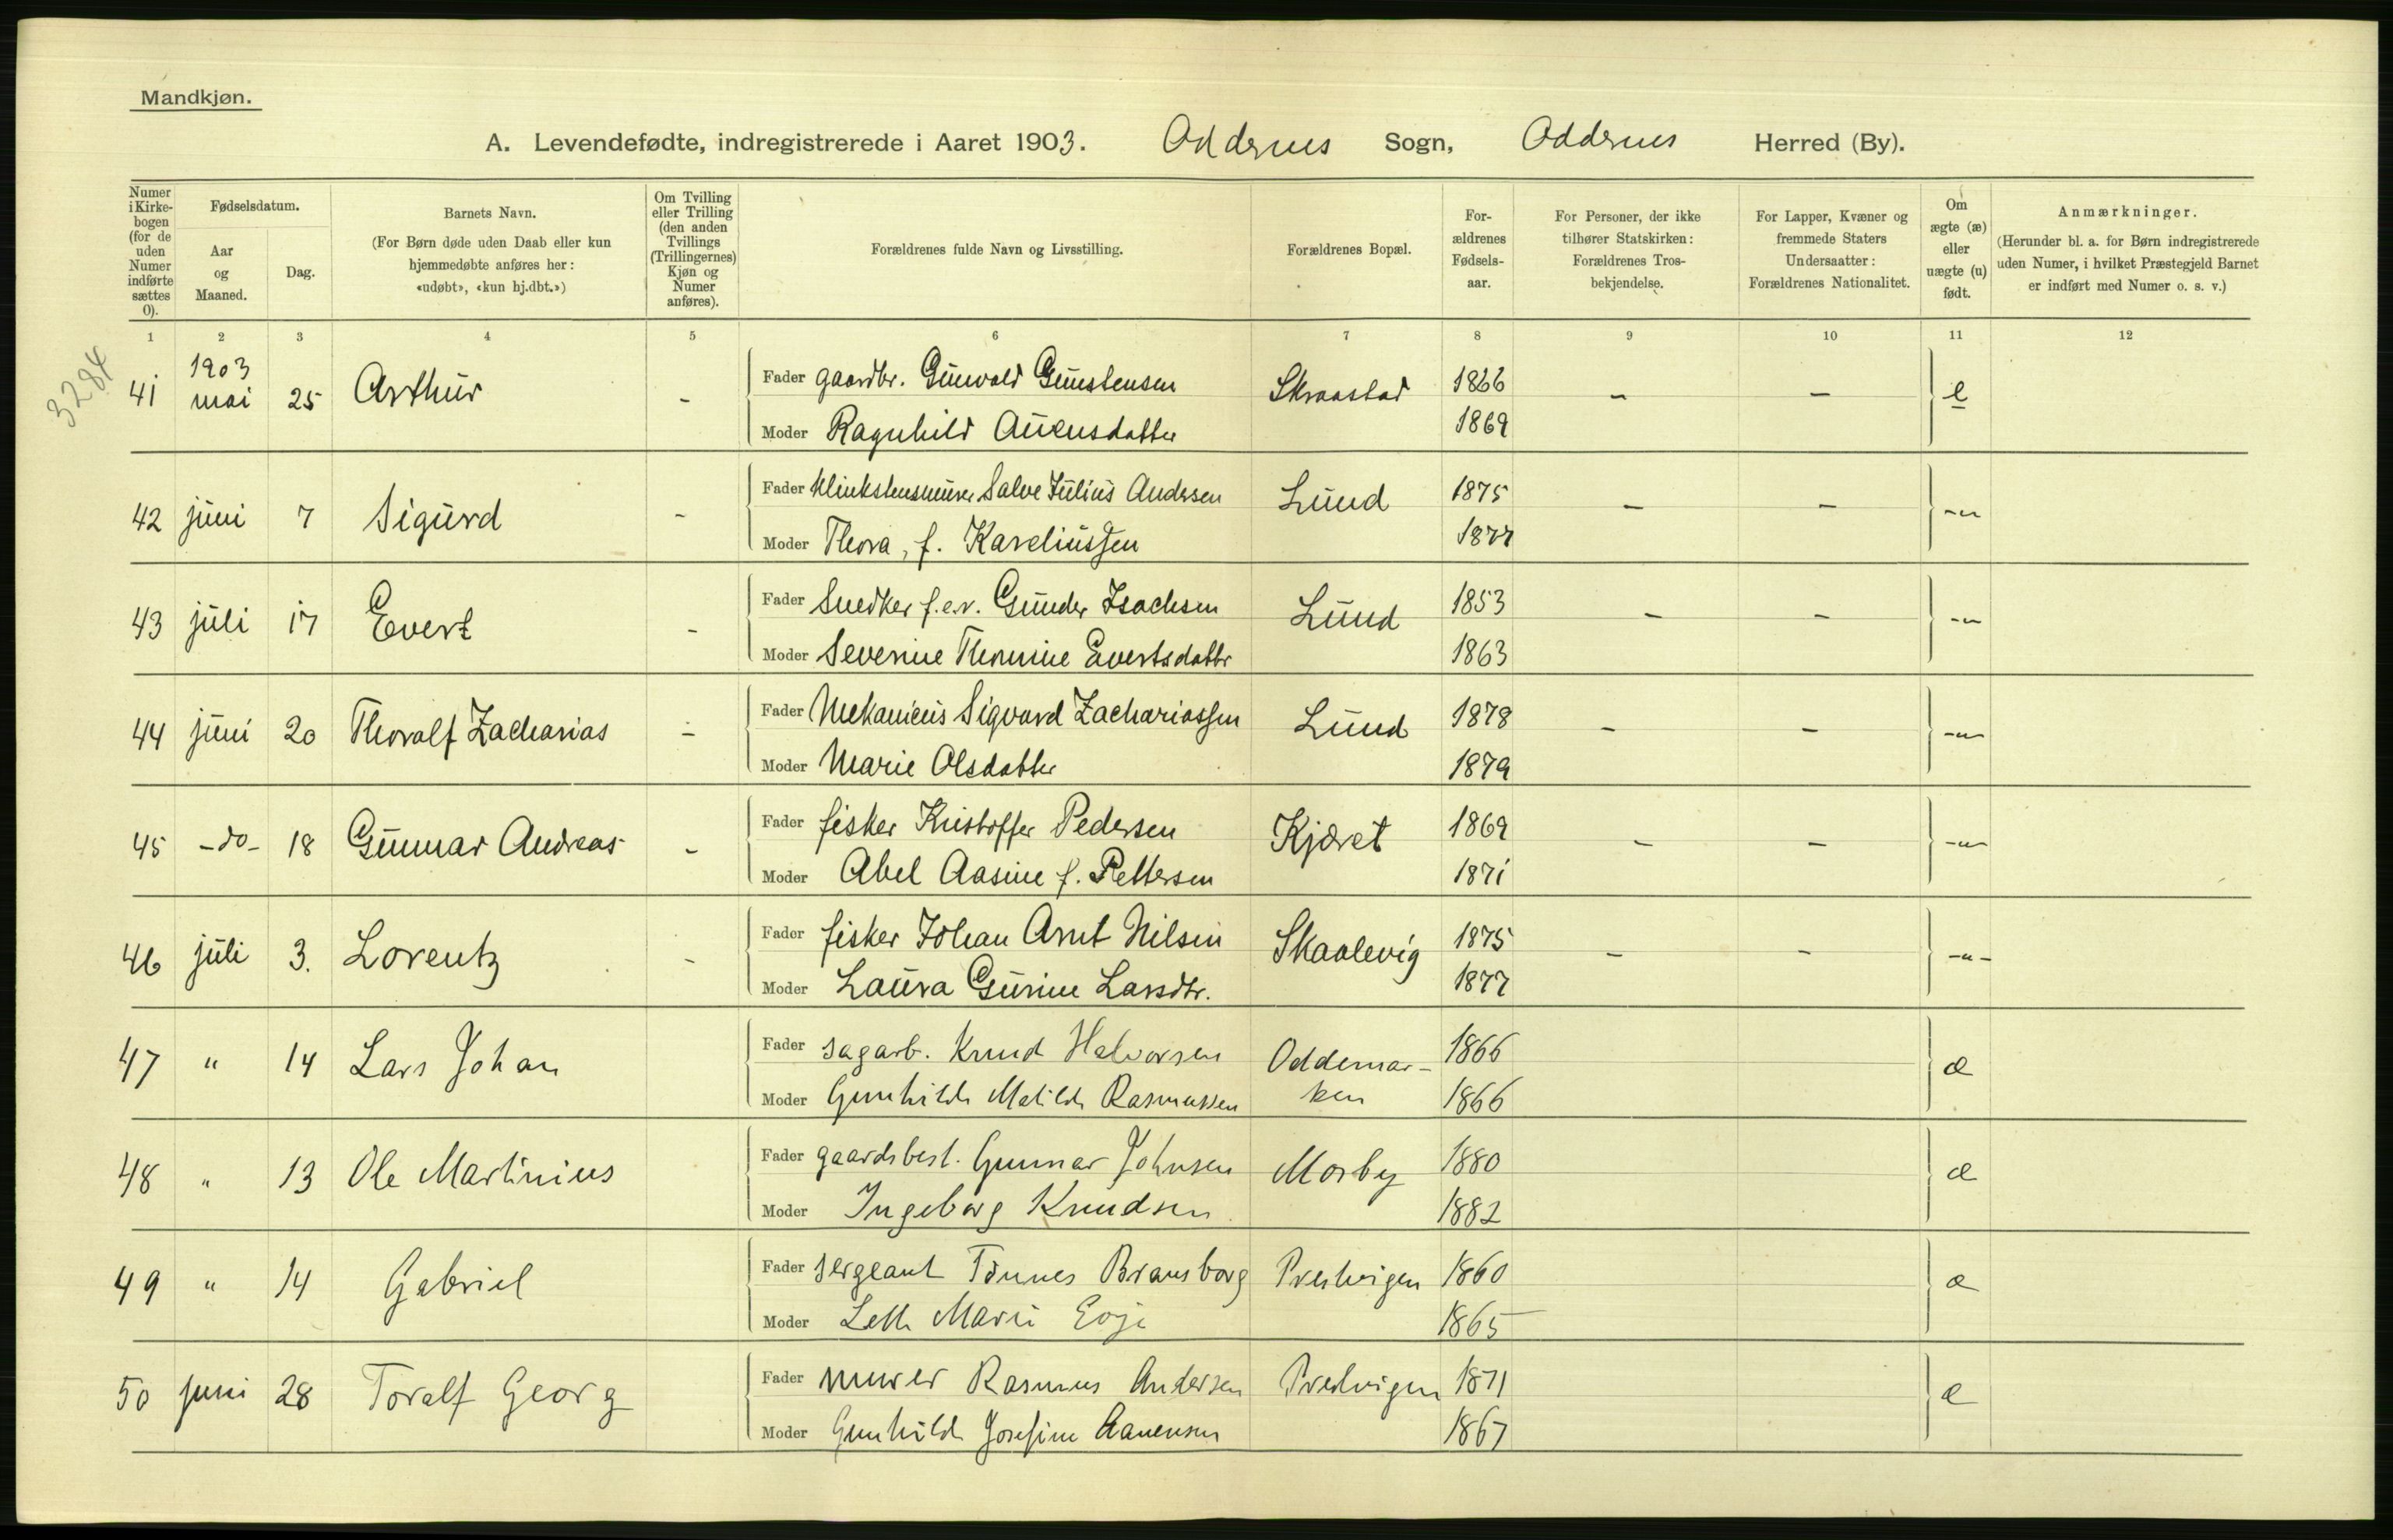 Mandkjøn.
A. Levendefødte, indregistrerede i Aaret 1903. Oddernes Sogn, Oddernes Herred (By).
Numer i Kirke-bogen (for de uden Numer indførte sættes 0).
Fødselsdatum.
Aar og Maaned.
Dag.
Barnets Navn.
(For Børn døde uden Daab eller kun hjemmedøbte anføres her: «udøbt», «kun hj.dbt.»)
Om Tvilling eller Trilling (den anden Tvillings (Trillingernes) Kjøn og Numer anføres).
Forældrenes fulde Navn og Livsstilling.
Forældrenes Bopæl.
For-ældrenes Fødsels-aar.
For Personer, der ikke tilhører Statskirken: Forældrenes Tros-bekjendelse.
For Lapper, Kvæner og fremmede Staters Undersaatter: Forældrenes Nationalitet.
Om ægte (æ) eller uægte (u) født.
Anmærkninger.
(Herunder bl. a. for Børn indregistrerede uden Numer, i hvilket Præstegjeld Barnet er indført med Numer o. s. v.)
1 2 3 4 5 6 7 8 9 10 11 12
3284
41 1903 mai 25 Arthur - Fader gaardbr. Gunvald Gunstensen Skraastad 1866 - - e
Moder Ragnhild Auensdatter 1869
42 juni 7 Sigurd - Fader Klinkstensmurer Salve Julius Andersen Lund 1875 - - -"-
Moder Thora, f. Kareliussen 1877
43 juli 17 Evert - Fader Snedker f.e.v. Gunder Isachsen Lund 1853 - - -"-
Moder Severine Thomine Evertsdattr 1863
44 juni 20 Thoralf Zacharias - Fader Mekanicus Sigvard Zachariassen Lund 1878 - - -"-
Moder Marie Olsdatter 1879
45 -do- 18 Gunnar Andreas - Fader fisker Kristoffer Pedersen Kjæret 1869 - - -"-
Moder Abel Aasine f. Pettersen 1871
46 juli 3. Lorentz - Fader fisker Johan Arnt Nilsen Skaalevig 1875 - - -"-
Moder Laura Gurine Larsdtr. 1877
47 " 14 Lars Johan Fader sagarb. Knud Halvorsen Oddemar- 1866 æ
Moder Gunhilde Matilde Rasmussen ken 1866
48 " 13 Ole Martinius Fader gaardsbest. Gunnar Johnsen Mosby 1880 æ
Moder Ingeborg Knudsen 1882
49 " 14 Gabriel Fader sergeant Tønnes Bransborg Prestvigen 1860 æ
Moder Marie 1865
50 juni 28 Toralf Georg Fader murer Rasmus Andersen Prestvigen 1871 æ
Moder Gunhilde Josefine Aanensen 1867